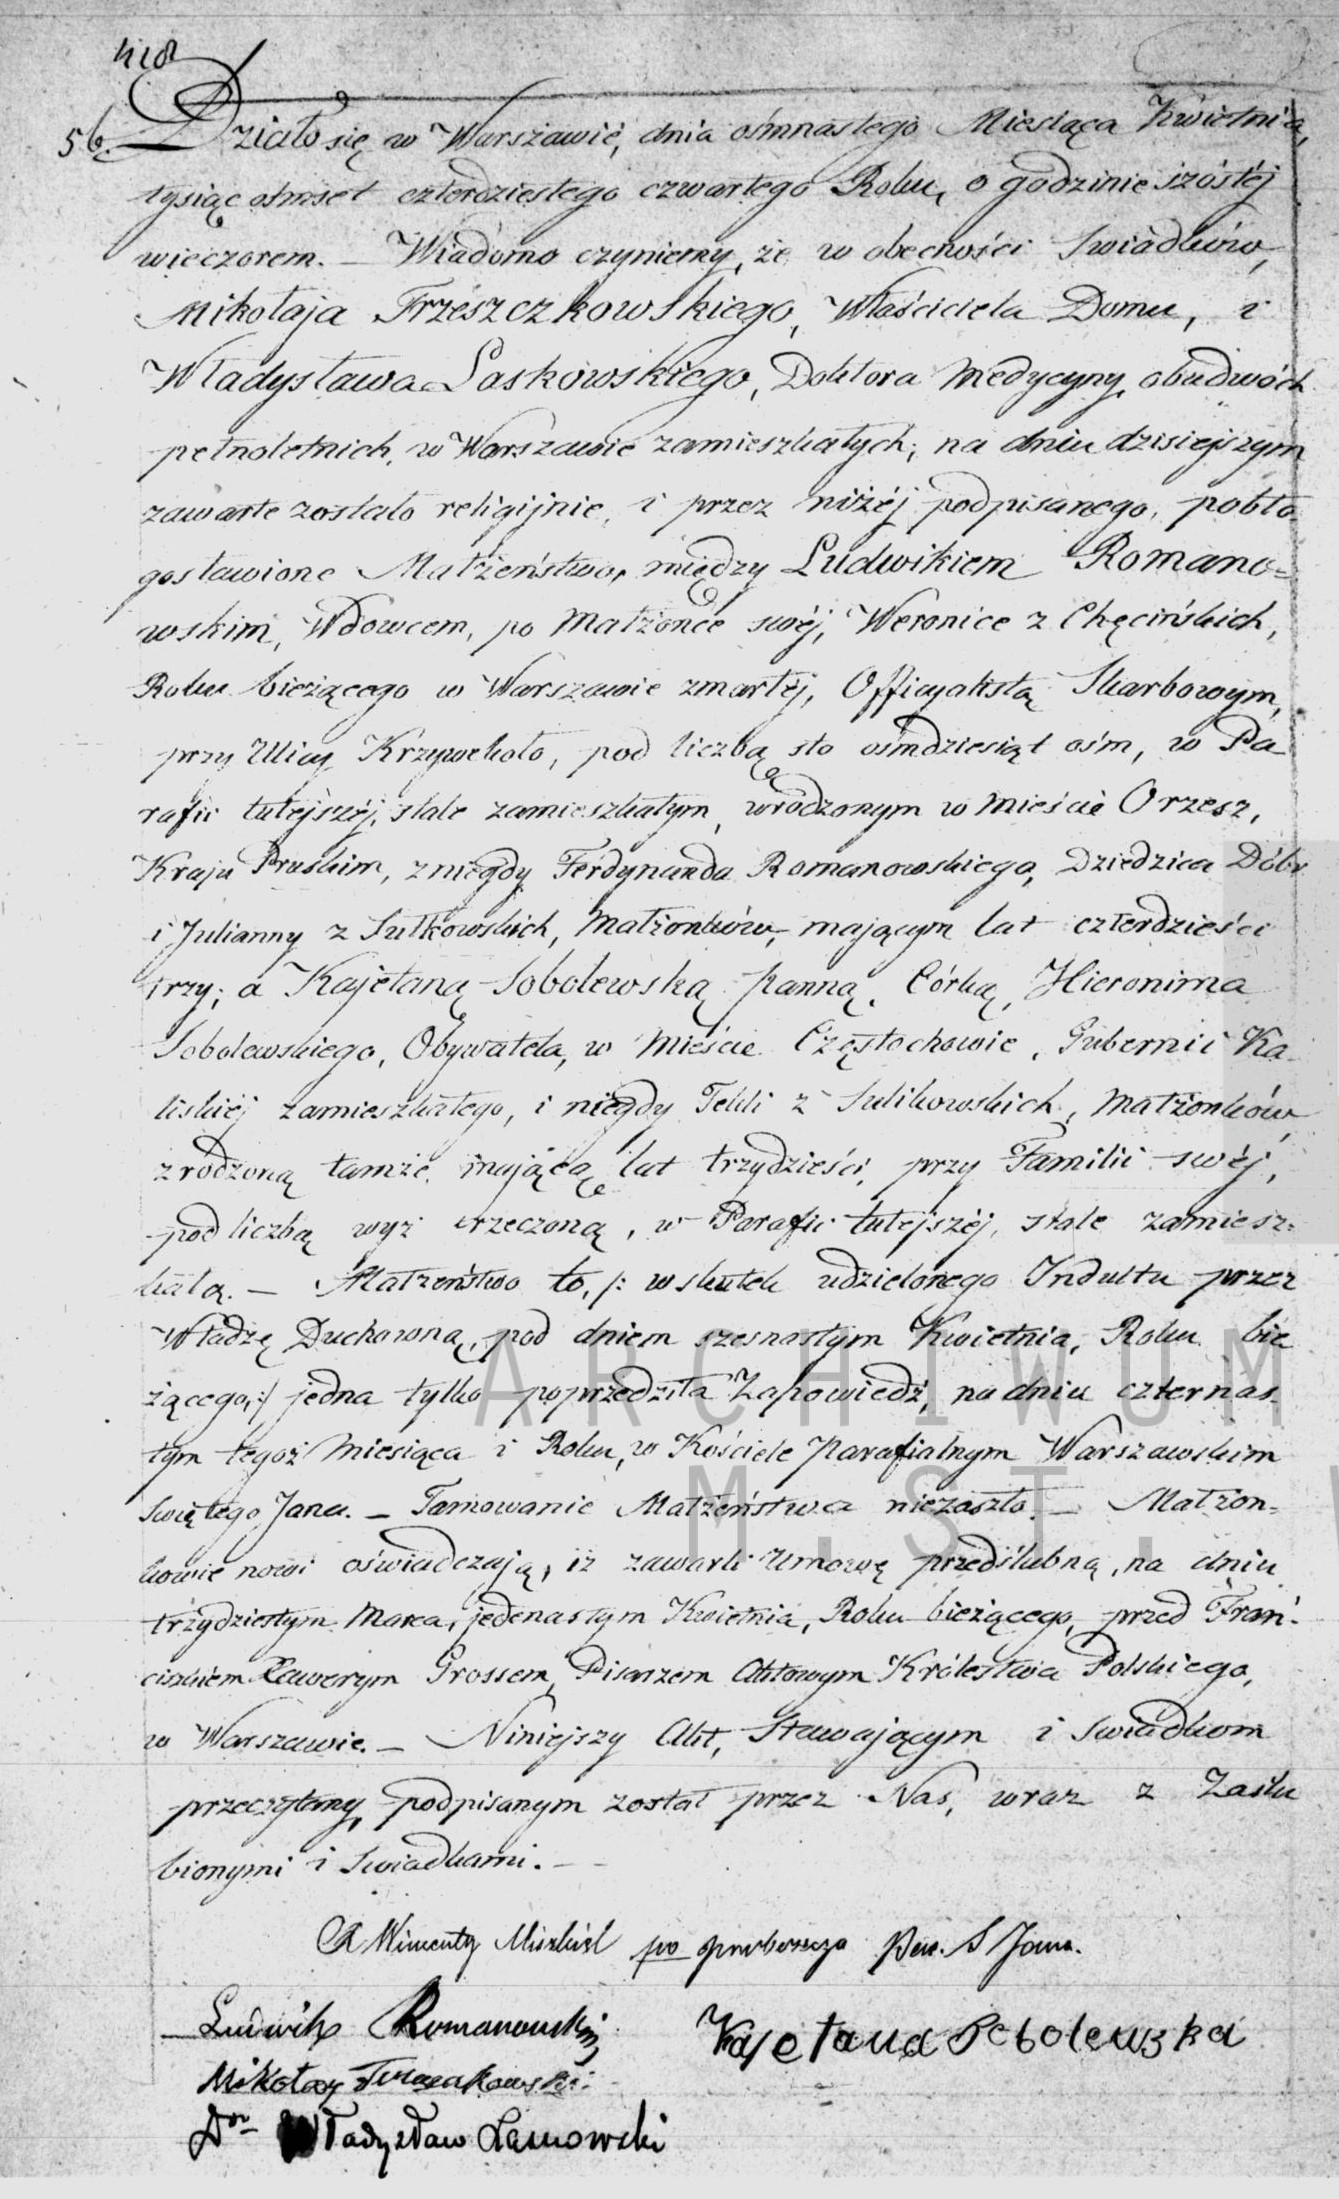 418
56. Działo się w Warszawie, dnia ośmnastego Miesiąca Kwietnia,
tysiąc ośmset czterdziestego czwartego Roku, o godzinie szóstéj
wieczorem. – Wiadomo czyniemy, że w obecności Swiadków,
Mikołaja Trzeszczkowskiego, Właściciela Domu, i
Władysława Laskowskiego, Doktora Medycyny, obudwóch
pełnoletnich, w Warszawie zamieszkałych; na dniu dzisiejszym
zawarte zostało religijnie, i przez niżéj podpisanego, pobło-
gosławione Małżeństwo, między Ludwikiem Romano=
wskim, Wdowcem, po Małżonce swéj, Weronice z Chęcińskich,
Roku bieżącego w Warszawie zmarłéj, Officyalistą Skarbowym,
przy Ulicy Krzywekoło, pod liczbą sto ośmdziesiąt ośm, w Pa
rafii tutejszéj, stale zamieszkałym, urodzonym w mieście Orzesz,
Kraju Pruskim, z niegdy Ferdynanda Romanowskiego, Dziedzica Dóbr
i Julianny z Sułkowskich, Małżonków, mającym lat czterdzieści
trzy; a Kajetaną Sobolewską Panną, Córką, Hieronima
Sobolewskiego, Obywatela, w Mieście Częstochowie, Gubernii Ka-
liskiéj zamieszkałego, i niegdy Tekli z Sulikowskich, Małżonków,
zrodzoną tamże, mającą lat trzydzieści, przy Familii swéj,
pod liczbą wyż rzeczoną, w Parafii tutejszéj, stale zamiesz=
kałą. – Małżeństwo to, /: w skutek udzielonego Indultu przez
Władzę Duchowną, pod dniem szesnastym Kwietnia, Roku bie
żącego, :/ jedna tylko poprzedziła Zapowiedź, na dniu czternas-
tym tegoż Miesiąca i Roku, w Kościele Parafialnym Warszawskim
Swiętego Jana. – Tamowanie Małżeństwa niezaszło. – Małżon-
kowie nowi oświadczają, iż zawarli Umowę przedślubną, na dniu
trzydziestym Marca, jedenastym Kwietnia, Roku bieżącego, przed Fran-
ciszkiem Xawerym Grossem, Pisarzem Aktowym Królestwa Polskiego,
w Warszawie. – Niniejszy Akt, Stawającym i Swiadkom
przeczytany, podpisanym został przez Nas, wraz z Zaślu
bionymi i Swiadkami. –
X Wincenty po proboszcza Par. S Jana.
Ludwik Romanowski Kajetana Sobolewska
Mikołay
Dor Władysław
ARCHIWUM
M. ST.